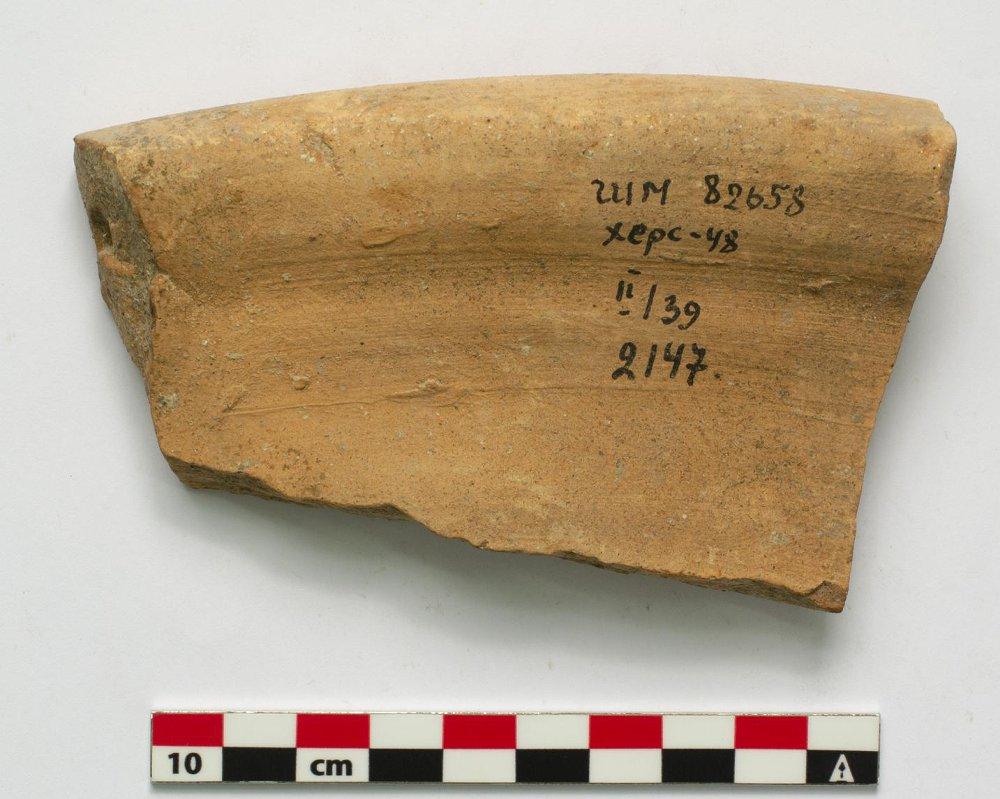 ГИМ 82658
херс-48
II/39
2147.
10 cm